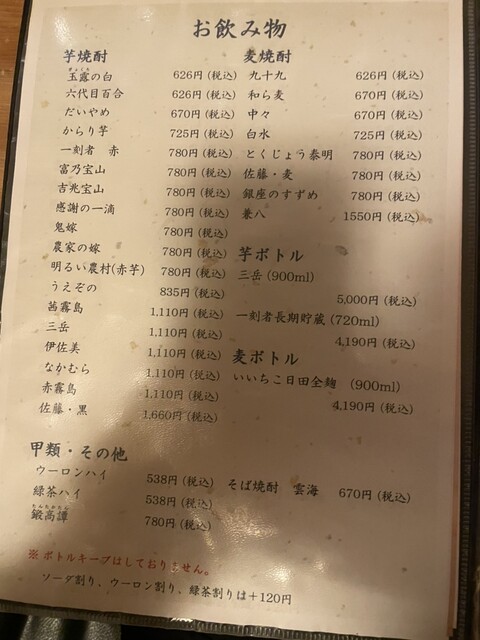 お飲み物
芋焼酎
玉露の白 626円(税込)
六代目百合 626円(税込)
だいやめ 670円(税込)
からり芋 725円(税込)
一刻者 赤 780円(税込)
富乃宝山 780円(税込)
吉兆宝山 780円(税込)
感謝の一滴 780円(税込)
鬼嫁 780円(税込)
農家の嫁 780円(税込)
明るい農村(赤芋) 780円(税込)
うえぞの 835円(税込)
茜霧島 1,110円(税込)
三岳 1,110円(税込)
伊佐美 1,110円(税込)
なかむら 1,110円(税込)
赤霧島 1,110円(税込)
佐藤・黒 1,660円(税込)
麦焼酎
九十九 626円(税込)
和ら麦 670円(税込)
中々 670円(税込)
白水 725円(税込)
とくじょう泰明 780円(税込)
佐藤・麦 780円(税込)
銀座のすずめ 780円(税込)
兼八 1550円(税込)
芋ボトル
三岳(900ml)
5,000円(税込)
一刻者長期貯蔵(720ml)
4,190円(税込)
麦ボトル
いいちこ日田全麹 (900ml)
4,190円(税込)
甲類・その他
ウーロンハイ 538円(税込)
緑茶ハイ 538円(税込)
たんたかたん
鍛高譚 780円(税込)
そば焼酎 雲海 670円(税込)
※ボトルキープはしておりません。
ソーダ割り、ウーロン割り、緑茶割りは+120円